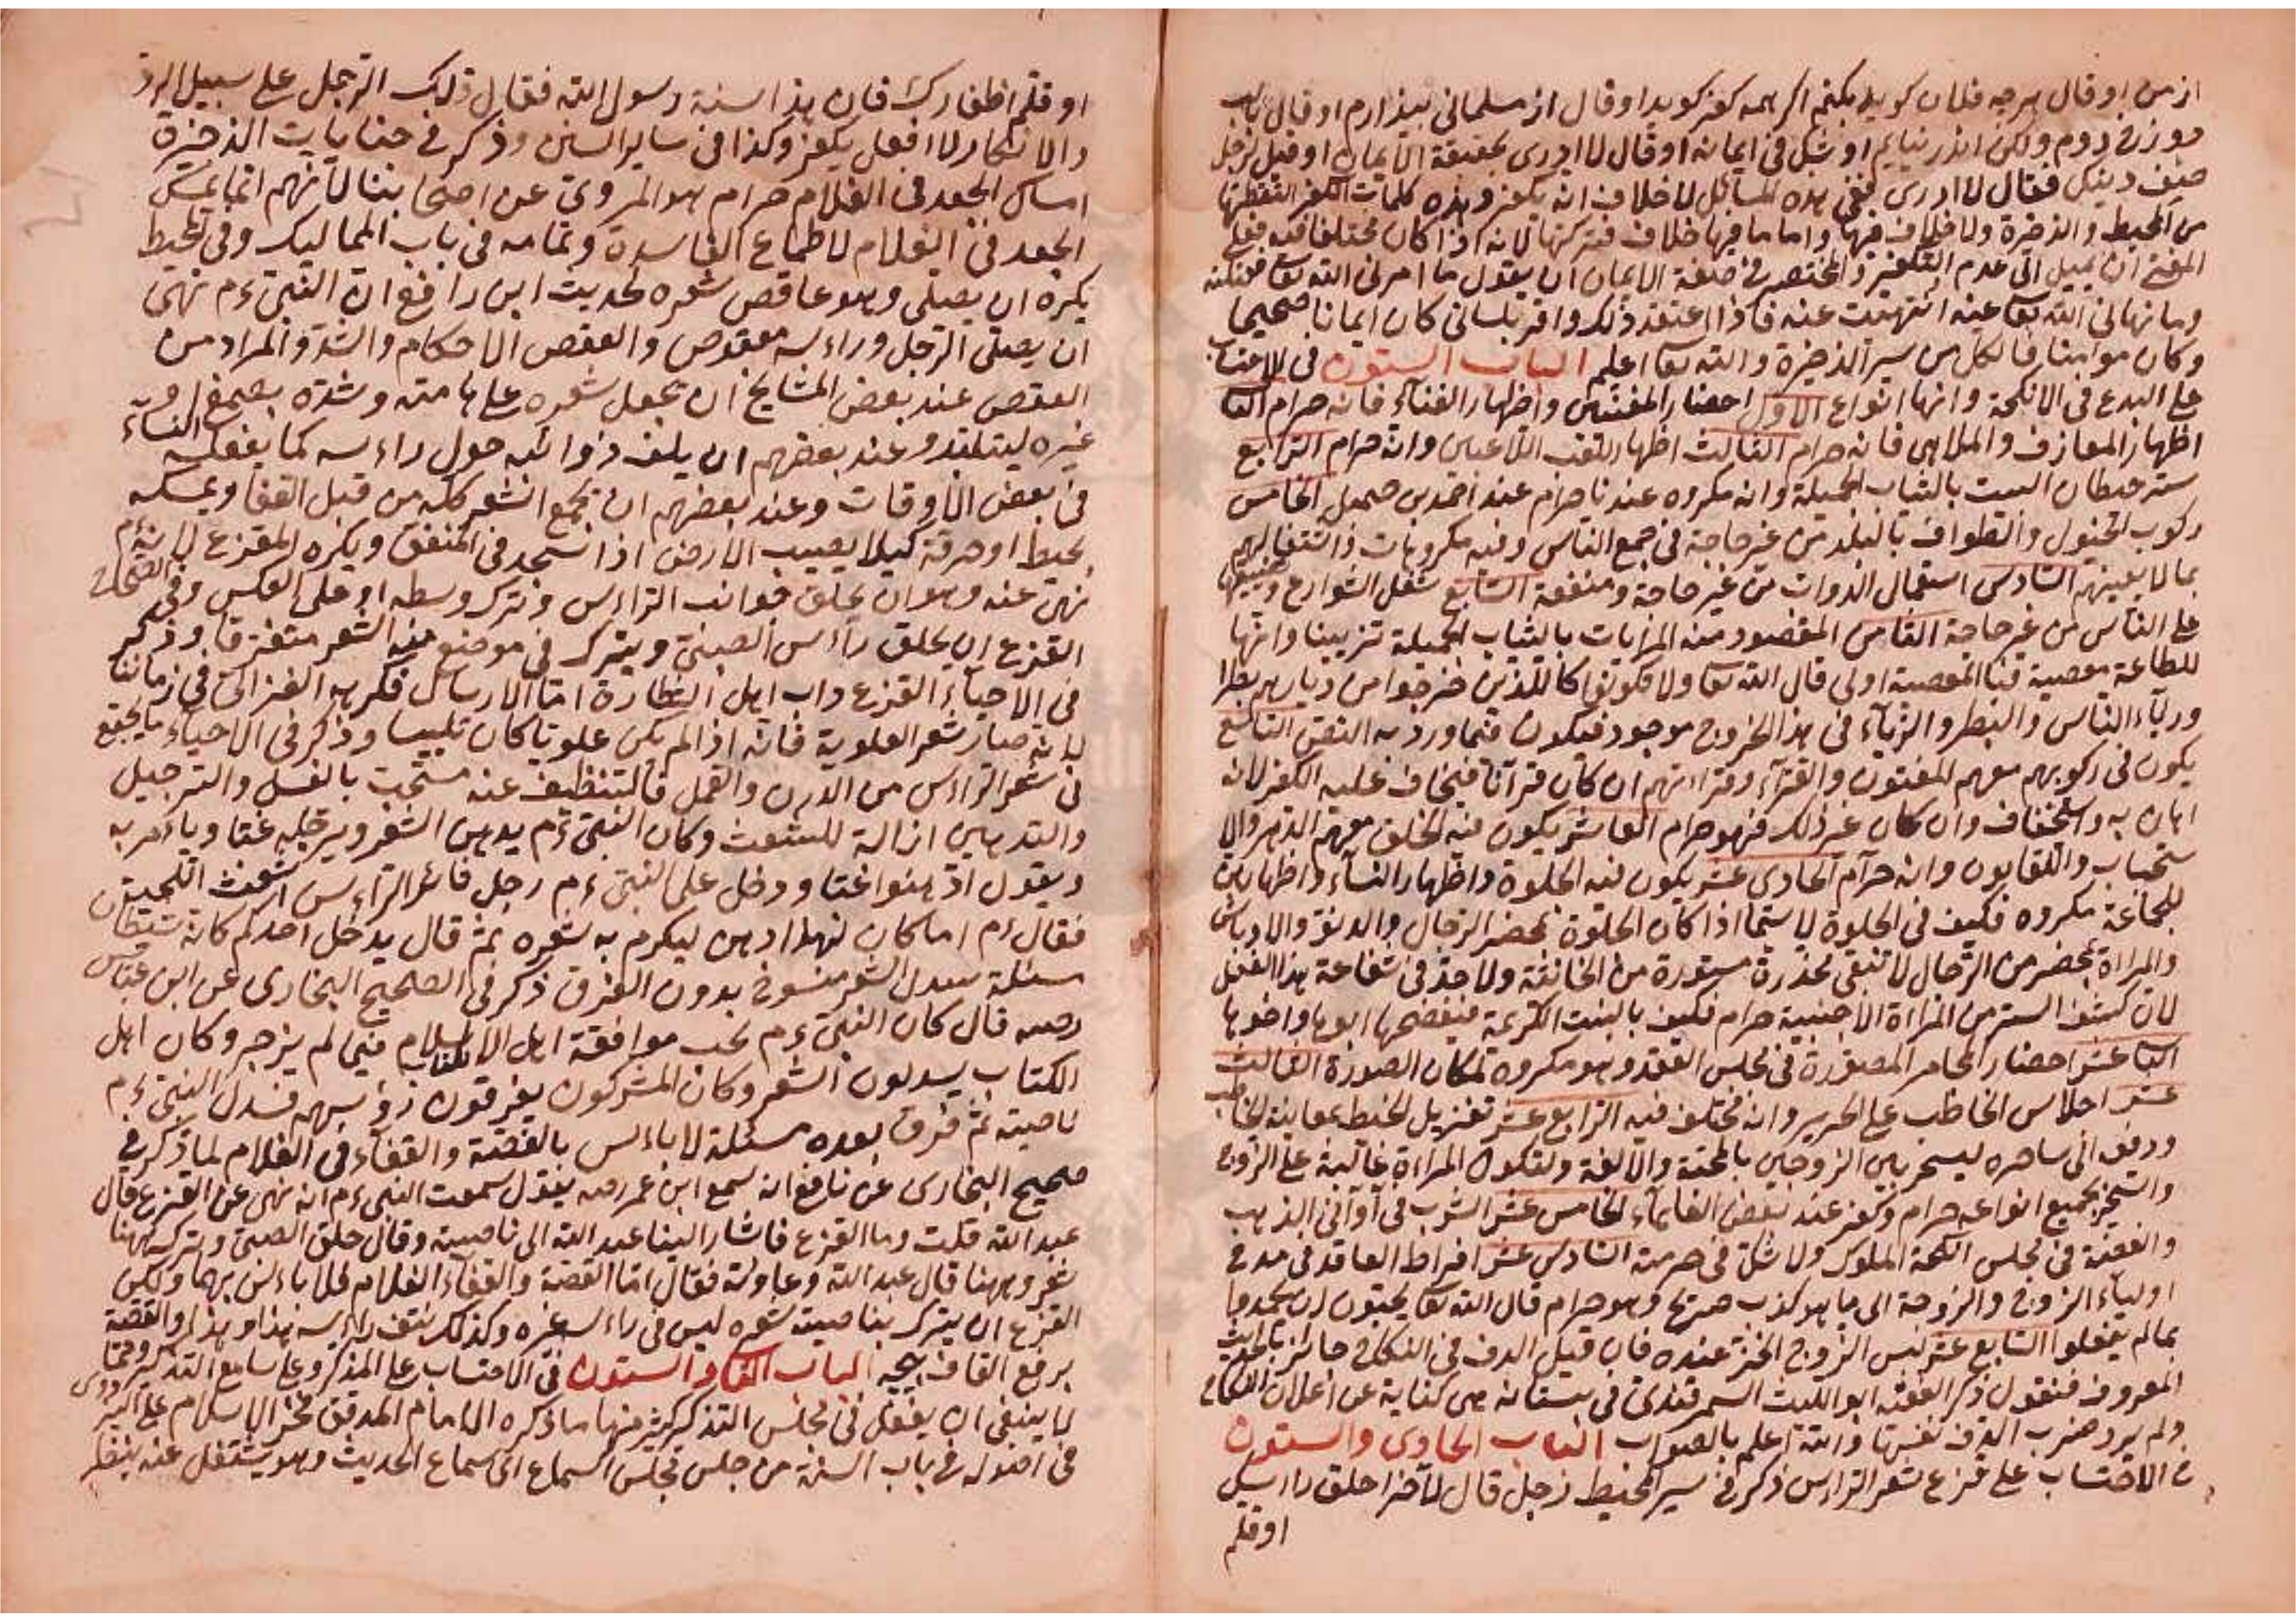 از من او قال هرچه فلان كويد بكنم اكر همه كفر كويد او قال از مسلمانى بيزارم او قال
دوزخ روم ولكن اندر نيايم او شك فى ايمانه او قال لا ادرى بحقيقة الايمان او قيل لرجل
صف دينك فقال لا ادرى ففى هذه المسائل لا خلاف انه يكفر وهذه كلمات الكفر التقطتها
من المحيط والذخيرة ولا خلاف فيها واما ما فيها خلاف فتركتها لانه اذا كان مختلفا فيه فعلى
المفتى ان يميل الى عدم التكفير والمختصر فى صفة الايمان ان يقول ما امرنى الله تعا قبلته
وما نهانى الله تعا عنه انتهيت عنه فاذا اعتقد ذلك واقر بلسانى كان ايمانا صحيحا
وكان مؤمنا فالكل من سير الذخيرة والله تعا اعلم الباب الستون فى الاحتساب
على البدع فى الانكحة وانها انواع الاول احضار المغنيين واظهار الغناء فانه حرام الثا
اظهار المعازف والملاهى فانه حرام الثالث اظهار اللعب اللاعبين وانه حرام الرابع
ستر حيطان البيت بالثياب الجميلة وانه مكروه عندنا حرام عند احمد بن حميل الخامس
ركوب الخيول والطواف بالبلد من غير حاجة فى جمع الناس وفيه مكروهات اشتغالهم
بما لا يعنيهم السادس استعمال الدواب من غير حاجة ومنفعة السابع شغل الشوارع وتضييقها
على الناس من غير حاجة الثامن المقصود منه المراءات بالثياب الجميلة تزيينا وانها
للطاعة معصية فبا المعصية اولى قال الله تعا ولا تكونوا كالذين خرجوا من ديارهم بطرا
ورياء الناس والبطر والرياء فى هذا الخروج موجود فيكون فيما ورد به النص التاسع
يكون فى ركوبهم معهم المغنون والقراء وقراءتهم ان كان قرآنا فيخاف عليه الكفر لانه
اهان به واستخفاف وان كان غير ذلك فهو حرام العاشر يكون فيه الخلق معهم
وانه حرام الحادى عشر يكون فيه الجلوة واظهار النساء واظهارهن
للجماعة مكروه فكيف فى الجلوة لا سيما اذا كان الجلوة بمحضر الرجال
والمراة بمحضر من الرجال لا تبقى مخدرة مستورة من الخائنة ولا حد فى شناعة هذا الفعل
لان كشف الستر من المراة الاجنبية حرام فكيف بالبنت الكريمة فيفضحها ابوها واخوها
الثا عشر احضار المجامر المصورة فى مجلس العقد وهو مكروه لمكان الصورة الثالث
عشر اجلاس الخاطب على الحرير وانه مختلف فيه الرابع عشر تغزيل الخيط بمعاينة الخاطب
ودفعه الى ساحره ليسحر بين الزوجين بالمحبة والالفة ولتكون المراة غالبة على الزوج
والسحر بجميع انواعه حرام وكفر عند بعض العلماء الخامس عشر الشرب فى اوانى الذهب
والفضة فى مجلس انكحة الملوك ولا شك فى حرمته السادس عشر افراط العاقد فى مدح
اولياء الزوج والزوجة الى ما هو كذب صريح وهو حرام قال الله تعا يحبون ان يحمدوا
بما لم يفعلوا السابع عشر لبس الزوج الخز عنده فان قيل الدف فى النكاح جائز بالحديث
المعروف فنقول ذكر الفقيه ابو الليث السمرقندى فى بستانه هى كناية عن اعلان النكاح
ولم يرد ضرب الدف نفسها والله اعلم بالصواب الباب الحادى والستون
فى الاحتساب على قزع شعر الراس ذكر فى سير المحيط رجل قال لآخر احلق راسك
او قلم
او قلم اظفارك فان هذا سنة رسول الله فقال ذلك الرجل على سبيل الرد
والانكار لا افعل يكفر وكذا فى ساير السنن وذكر فى جنايات الذخيرة
امساك الجعد فى الغلام حرام هو المروى عن اصحابنا لانهم انما يمسك
الجعد فى الغلام لاطماع الفاسدة وتمامه فى باب المماليك وفى المحيط
يكره ان يصلى وهو عاقص شعره لحديث ابن رافع ان النبى ءم نهى
ان يصلى الرجل وراءسه معقوص والعقص الاحكام والشد والمراد من
العقص عند بعض المشايخ ان يجعل شعره على هامته وشده بصمغ او
غيره ليتلبد وعند بعضهم ان يلف ذوائبه حول راءسه كما يفعله النساء
فى بعض الاوقات وعند بعضهم ان يجمع الشعر كله من قبل القفا ويمسكه
بخيط او خرقة كيلا يصيب الارض اذا سجد فى المتفق ويكره القزع لانه ءم
نهى عنه وهو ان يحلق جوانب الراءس ويترك وسطه او على العكس وفى الصحاح
القزع ان يحلق راءس الصبى ويترك فى موضع منه الشعر متفرقا وذكر
فى الاحياء القزع داب اهل الشطارة اما الارسال فكرهه الغزالى فى زماننا
لانه صار شعر العلوية فانه اذا لم يكن علويا كان تلبيسا وذكر فى الاحياء ما يجتمع
فى شعر الراءس من الدرن والقمل فالتنظيف عنه مستحب بالغسل والترجيل
والتدهين ازالة للشعث وكان النبى ءم يدهن الشعر ويرجله غبا وياءمر به
ويقول ادهنوا غبا ودخل على النبى ءم رجل ثائر الراءس اشعث اللحية
فقال ءم اما كان لهذا دهن ليكرم به شعره ثم قال يدخل احدكم كانه شيطان
مسئلة سدل الشعر منسوخ بدون الفرق ذكر فى الصحيح البخارى عن ابن عباس
رضه قال كان النبى ءم يحب موافقة اهل الكتاب فيما لم يزجر وكان اهل
الكتاب يسدلون الشعر وكان المشركون يفرقون رؤسهم فسدل النبى ءم
ناصيته ثم فرق بعده مسئلة لا باءس بالقصة والقفاء فى الغلام لما ذكر فى
صحيح البخارى عن نافع انه سمع ابن عمر رضه يقول سمعت النبى ءم انه نهى عن القزع قال
عبد الله قلت وما القزع فاشار الينا عبد الله الى ناصيته وقال حلق الصبى وترك ههنا
شعر وههنا قال عبد الله وعاودته فقال اما القصة والقفاء الغلام فلا باءس بهما ولكن
القزع ان يترك بناصيته شعره ليس فى راءسه غيره وكذلك شق راءسه هذا وهذا والقصة
برفع القاف الباب الثا والستون فى الاحتساب على المذكر وعلى سامع التذكير
لا ينبغى ان يفعل فى مجلس التذكير كثير منها ما ذكره الامام المدقق فخر الاسلام على البزدوى
فى اصوله فى باب السنة من جلس مجلس السماع الى سماع الحديث وهو يشتغل عنه بنظر